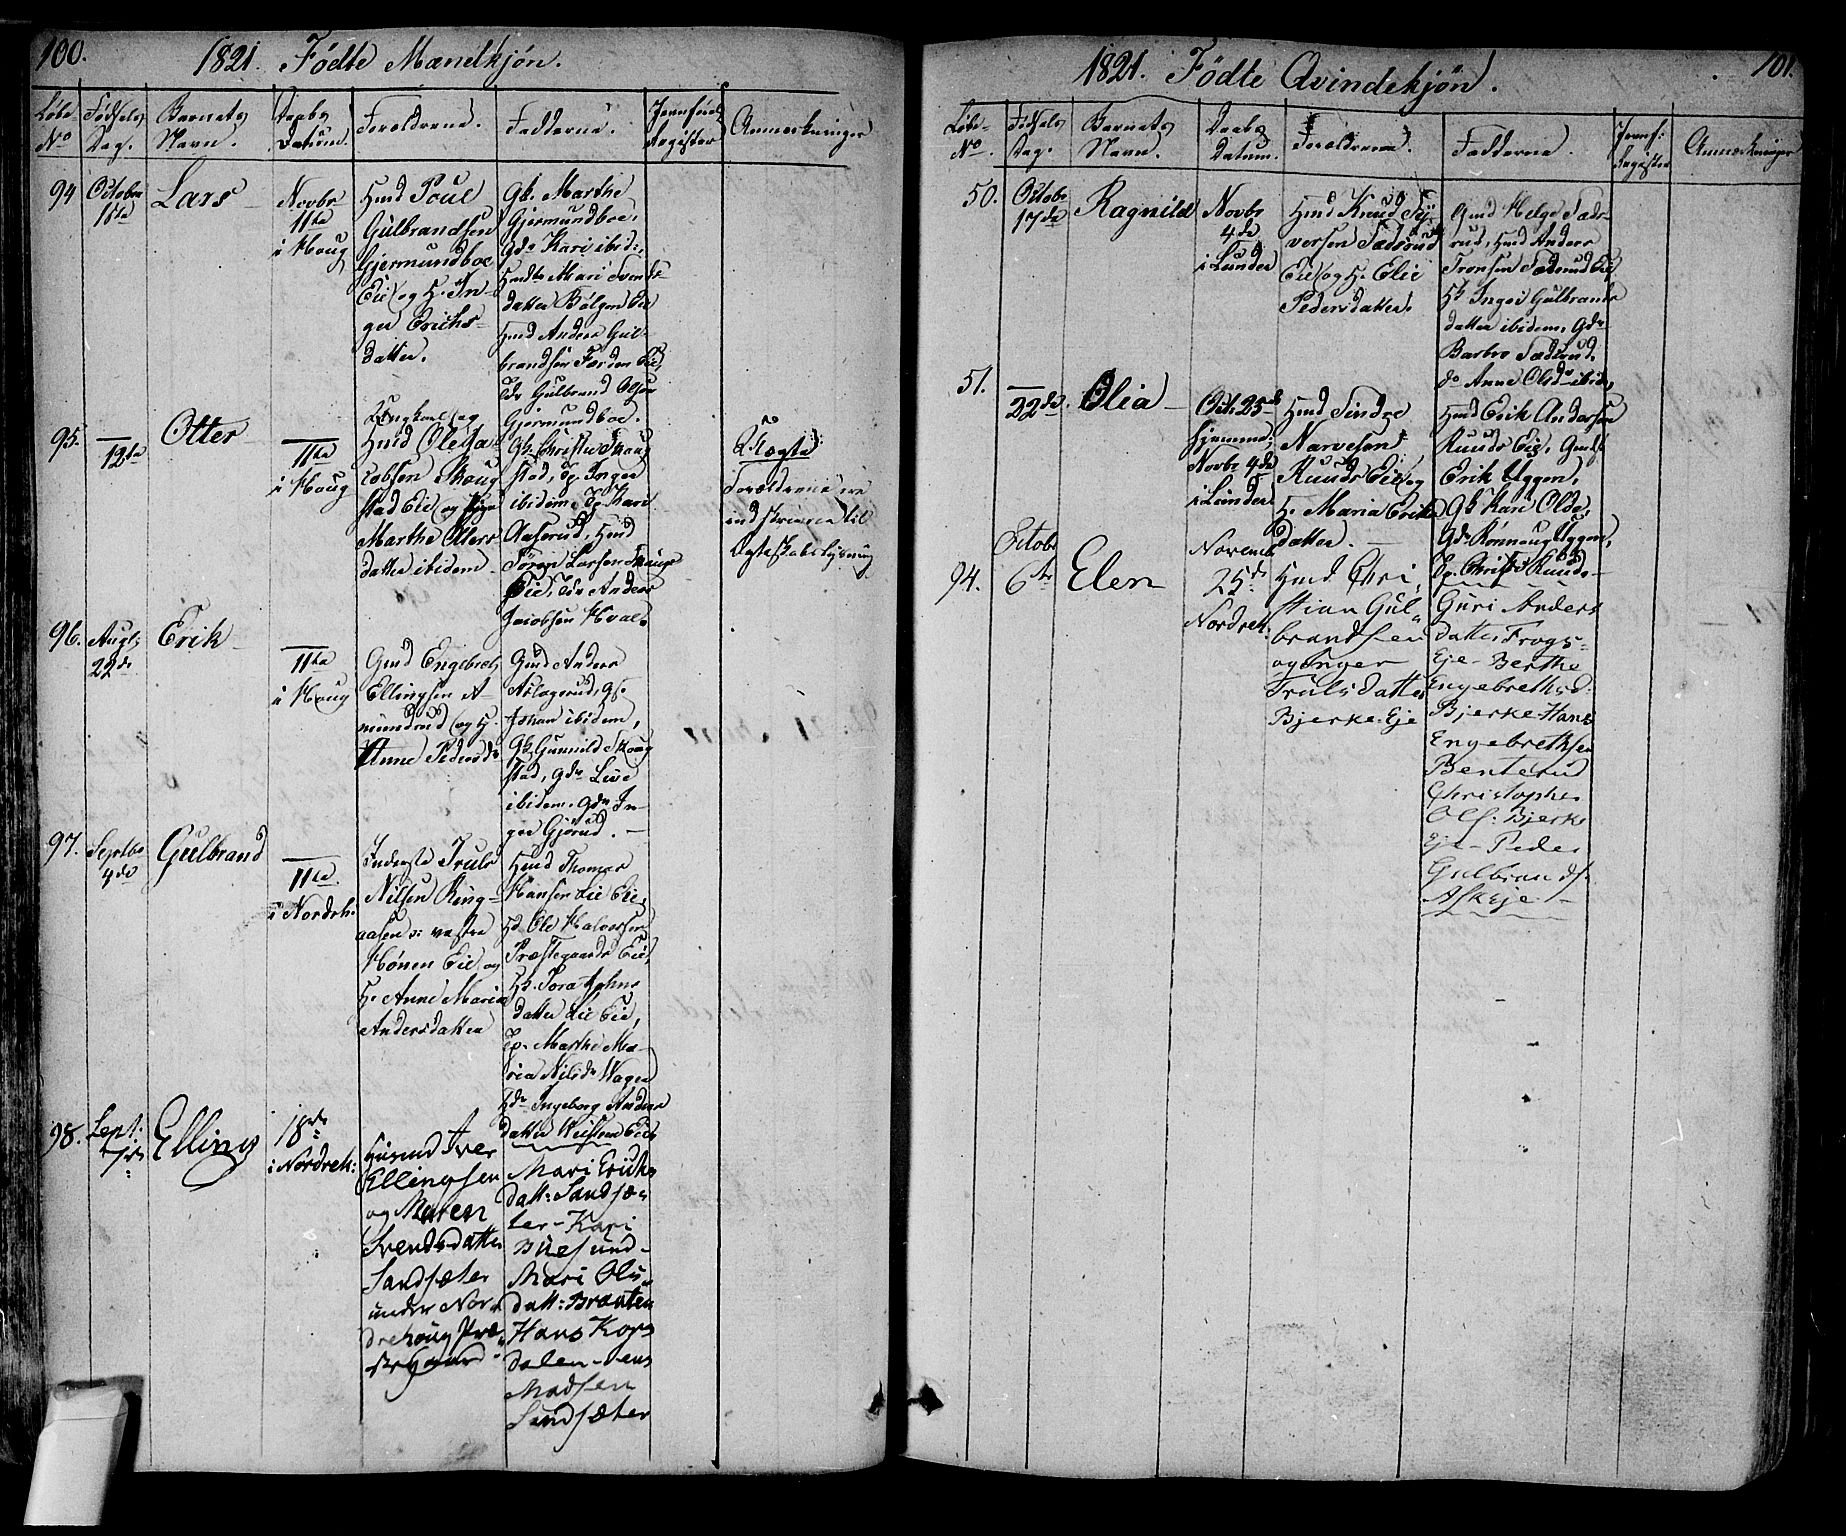 100.
1821. Födte Mandkjön.
Löbe No
Födsels Dag.
Barnets Navn.
Daabs Datum.
Forældrene.
Fadderne.
Jevnförels Register
Anmærkninger
94
Octobr
Lars
Novbr
11te
i Houg
Hmd Poul
Gulbrandsen
Gjermundboe
Eie og H. In-
ger Erichs-
datter.
Gk. Marthe
Gjermundboe,
Gdr Kari ibid:,
Mari Svends-
datter Bölgen Eie
Hmd Anders Gul-
brandsen Færden Eie,
Gulbrand Olsen
Gjermundboe.
95.
12te
Otter
11te
i Houg
Ungkarl og
Hmd Ole Ja-
cobsen Skoug
stad Eie og Pige
Marthe Olers
datter ibidem
Gk. Christi Skoug
stad, Inger
ibidem, Kari
Aaserud, Hmd
Sören Larsen Skougs
Eie, Anders
Jacobsen Hval.
Uægte
Forældrene ere
indskrevne til
Ægteskabslysning
96.
Augs
22de
Erik
11te
i Houg
Gmd Engebret
Ellingsen A-
mundrud og H.
Anne Pedersdr
Gmd Anders
Aslagsrud, Gs.
Johan ibidem,
Gk Gunnild Skoug
stad, Gdr Live
ibidem. Gdr In-
ger Gjörud.
97.
Septbr
4de
Gulbrand
11te
i Nordreh.
Inderste Truls
Nilsen Ring-
aasen o: vestre
Hönen Eie og
H. Anne Maria
Andersdatter
Hmd Thomas
Hansen Lie Eie,
Ole Halvorsen
Præstegaards Eie,
Hk. Tora Johns
datter Lie Eie,
Marthe Ma-
ria Nilsdr Wagen
Ingeborg Anders
datter Veisteen Eie
98.
Sept:
7de
Elling
18de
i Nordreh:
Husmd Iver
Ellingsen
og Maren
Svendsdatter
Sandsæter
under Nor
drehoug Præ-
stegaard
Mari Erichs
datt: Sandsæ-
ter - Kari
Buesund -
Mari Ols
datt: Braaten
Hans Kors
dalen - Jens
Madsen
Sandsæter
1821. Födte Qvindekjön.
101.
Löbe- No.
Födsels Dag.
Barnets Navn.
Daabs Datum.
Forældrene.
Fadderne.
Jevnf: Register
Anmærkninger
50.
Octobr
17de
Ragnild
Novbr
4de
i Lunder
Hmd Knud Sy-
versen Sædsrud
Eie og H. Elie
Pedersdatter.
Gmd Helge Sæds-
rud, Hmd Anders
Tronsen Sædsrud Eie
Hk Ingeri Gulbrands
datter ibidem, Gdr
Barbro Sædsrud,
do Anne Olsdr ibid,
51.
22de
Olia
Oct. 25de
hjemme:
Novbr 4de
i Lunder
Hmd Sindre
Narvesen
Ruuds Eie og
H. Maria Eriks
datter.
Hmd Erik Andersen
Ruuds Eie, Gmd
Erik Uggen,
Gk Kari Olsdr,
Gdr Rönnaug Uggen,
Christi Ruuds-
94.
Octobr
6te
Elen
Novemb
25de
Nordreh:
Hmd Chri,
stian Gul
brandsen
og Inger
Trulsdatter
Bjerke-Eje
Guri Anders
datter Frogs-
Eje - Berthe
Engebrethsd:
Bjerke. Hans
Engebrethsen
Benterud
Christopher
Ols: Bjerke
Eje - Peder
Gulbrands:
Ask Eje -